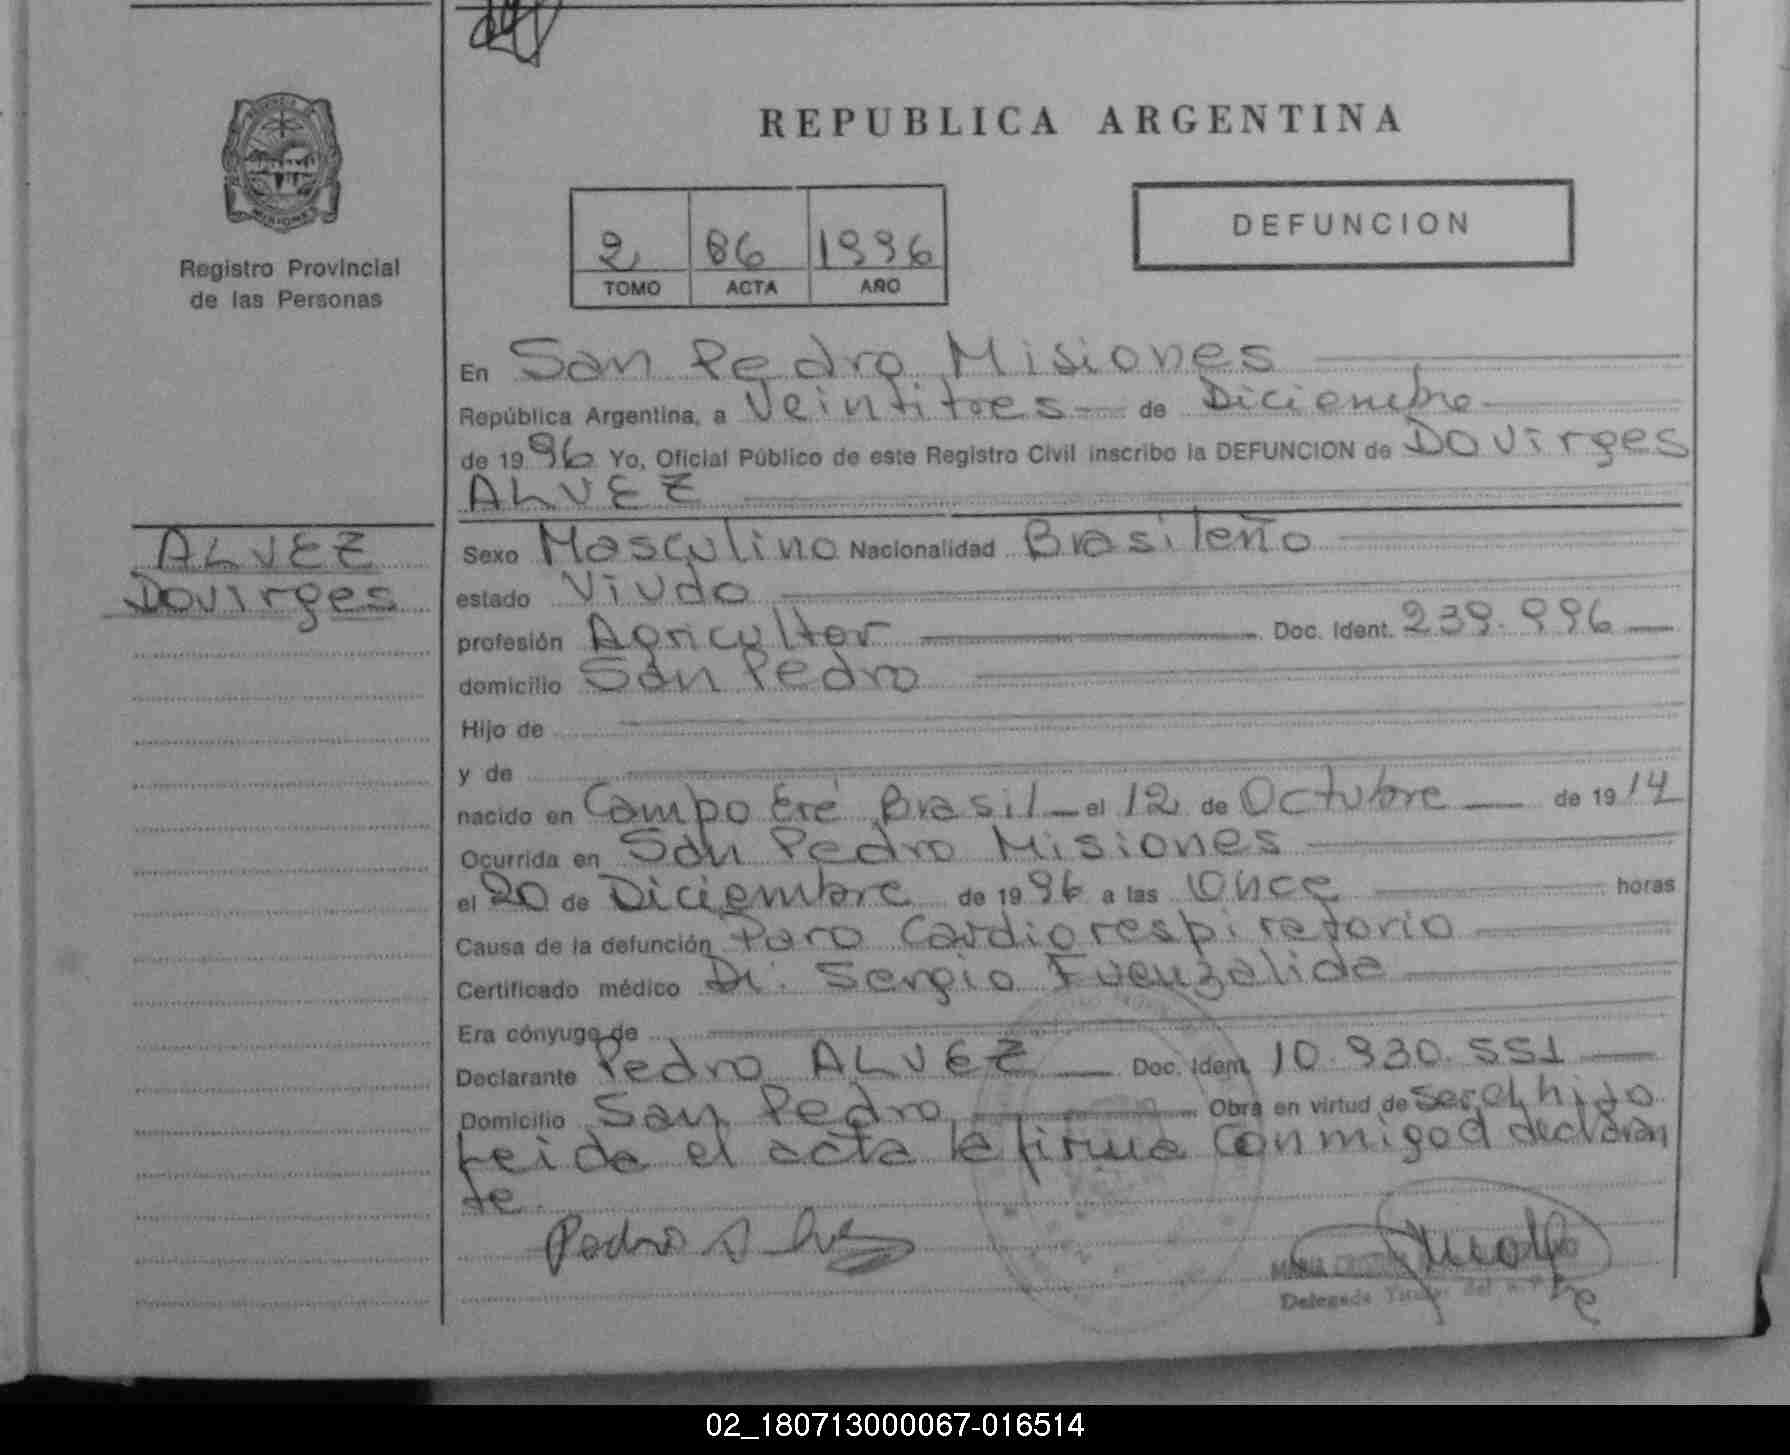 REPUBLICA ARGENTINA
DEFUNCION
2 86 1996
TOMO ACTA AÑO
MISIONES
Registro Provincial
de las Personas
ALVEZ
Dovirges
En San Pedro Misiones
República Argentina, a Veintitres de Diciembre
de 1996 Yo, Oficial Público de este Registro Civil inscribo la DEFUNCION de Dovirges
ALVEZ
Sexo Masculino Nacionalidad Brasileño
estado Viudo
profesión Agricultor Doc. Ident. 239.996
domicilio San Pedro
Hijo de
y de
nacido en Campo Eré Brasil el 12 de Octubre de 1914
Ocurrida en San Pedro Misiones
el 20 de Diciembre de 1996 a las Once horas
Causa de la defunción Paro Cardiorespiratorio
Certificado médico Dr. Sergio Fuenzalida
Era cónyuge de
Declarante Pedro ALVEZ Doc. Ident. 10.930.551
Domicilio San Pedro Obra en virtud de ser el hijo
Leida el acta la firma Conmigo el declaran
te.
Pedro Alvez
MARIA
Delegada Titular del
02_180713000067-016514